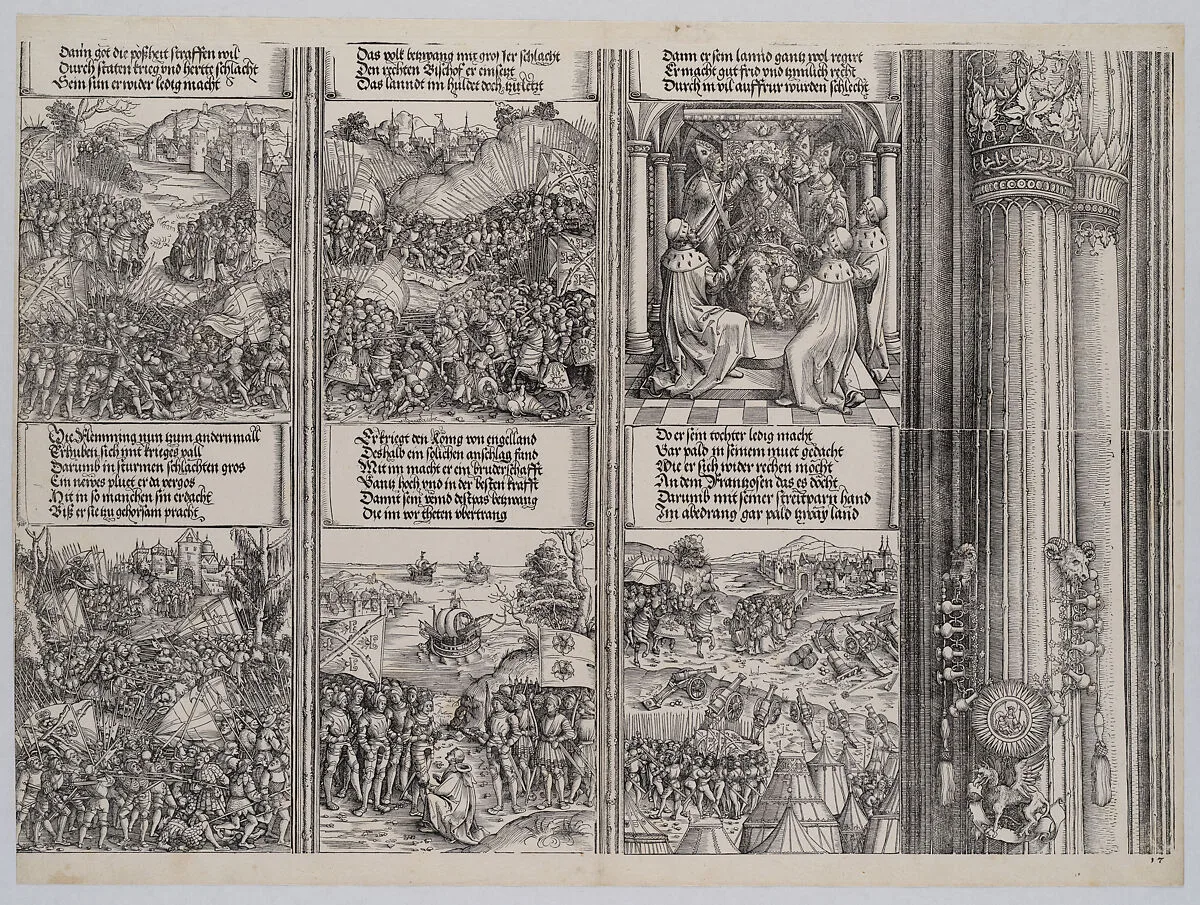 Dann got die poßheit straffen wil
Durch staten krieg vnd hertte schlacht
Sein sun er wider ledig macht
Das volk betzwang mit gros ser schlacht
Den rechten Bischof er einsetzt
Das lanndt im huldet doch zu letzt
Dann er sein lannd gantz wol regirt
Er macht gut frid vnd zimlich recht
Durch in vil auffrur wurden schlecht
Die Flemming nun zum andernmall
Erhuben sich mit krieges vall
Darumb in sturmen schlachten gros
Ein newes pluet er da vergos
Mit in so manchen sin erdacht
Biß er sie zu gehorsam pracht
Er kriegt den König von engelland
Deshalb ein solichen anschlag fand
Mit im macht er ein bruderschafft
Gantz hoch vnd in der besten krafft
Damit sein veind destbas betzwang
Die im vor theten vbertrang
Do er sein tochter ledig macht
War pald in seinem muet gedacht
Wie er sich wider rechen möcht
An dem Frantzosen das es döcht
Darumb mit seiner streitparn hand
Im abedrang gar pald tzway land
17